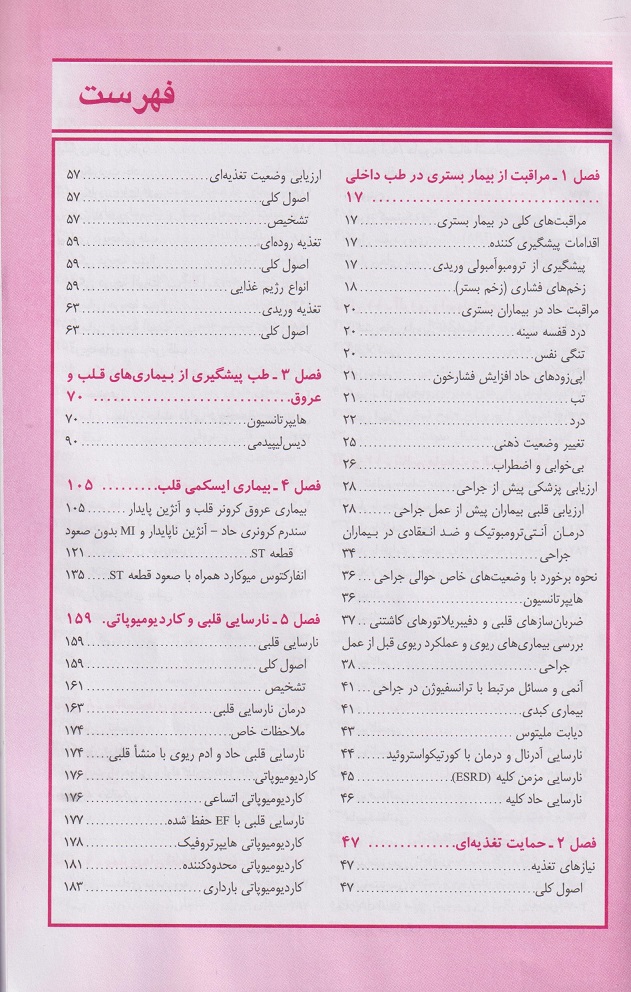 فهرست
فصل ۱ ـ مراقبت از بیمار بستری در طب داخلی
۱۷
مراقبت‌های کلی در بیمار بستری ۱۷
اقدامات پیشگیری کننده ۱۷
پیشگیری از ترومبوآمبولی وریدی ۱۷
زخم‌های فشاری (زخم بستر) ۱۸
مراقبت حاد در بیماران بستری ۲۰
درد قفسه سینه ۲۰
تنگی نفس ۲۰
اپی‌زودهای حاد افزایش فشارخون ۲۱
تب ۲۱
درد ۲۲
تغییر وضعیت ذهنی ۲۵
بی‌خوابی و اضطراب ۲۶
ارزیابی پزشکی پیش از جراحی ۲۸
ارزیابی قلبی بیماران پیش از عمل جراحی ۲۸
درمان آنتی‌ترومبوتیک و ضد انعقادی در بیماران
جراحی ۳۴
نحوه برخورد با وضعیت‌های خاص حوالی جراحی ۳۶
هایپرتانسیون ۳۶
ضربان‌سازهای قلبی و دفیبریلاتورهای کاشتنی ۳۷
بررسی بیماری‌های ریوی و عملکرد ریوی قبل از عمل
جراحی ۳۸
آنمی و مسائل مرتبط با ترانسفیوژن در جراحی ۴۱
بیماری کبدی ۴۱
دیابت ملیتوس ۴۳
نارسایی آدرنال و درمان با کورتیکواستروئید ۴۴
نارسایی مزمن کلیه (ESRD) ۴۵
نارسایی حاد کلیه ۴۶
فصل ۲ ـ حمایت تغذیه‌ای ۴۷
نیازهای تغذیه ۴۷
اصول کلی ۴۷
ارزیابی وضعیت تغذیه‌ای ۵۷
اصول کلی ۵۷
تشخیص ۵۷
تغذیه روده‌ای ۵۹
اصول کلی ۵۹
انواع رژیم غذایی ۵۹
تغذیه وریدی ۶۳
اصول کلی ۶۳
فصل ۳ ـ طب پیشگیری از بیماری‌های قلب و
عروق ۷۰
هایپرتانسیون ۷۰
دیس‌لیپیدمی ۹۰
فصل ۴ ـ بیماری ایسکمی قلب ۱۰۵
بیماری عروق کرونر قلب و آنژین پایدار ۱۰۵
سندرم کرونری حاد - آنژین ناپایدار و MI بدون صعود
قطعه ST ۱۲۱
انفارکتوس میوکارد همراه با صعود قطعه ST ۱۳۵
فصل ۵ ـ نارسایی قلبی و کاردیومیوپاتی ۱۵۹
نارسایی قلبی ۱۵۹
اصول کلی ۱۵۹
تشخیص ۱۶۱
درمان نارسایی قلبی ۱۶۳
ملاحظات خاص ۱۷۴
نارسایی قلبی حاد و ادم ریوی با منشأ قلبی ۱۷۴
کاردیومیوپاتی ۱۷۶
کاردیومیوپاتی اتساعی ۱۷۶
نارسایی قلبی با EF حفظ شده ۱۷۷
کاردیومیوپاتی هایپرتروفیک ۱۷۸
کاردیومیوپاتی محدودکننده ۱۸۱
کاردیومیوپاتی بارداری ۱۸۳